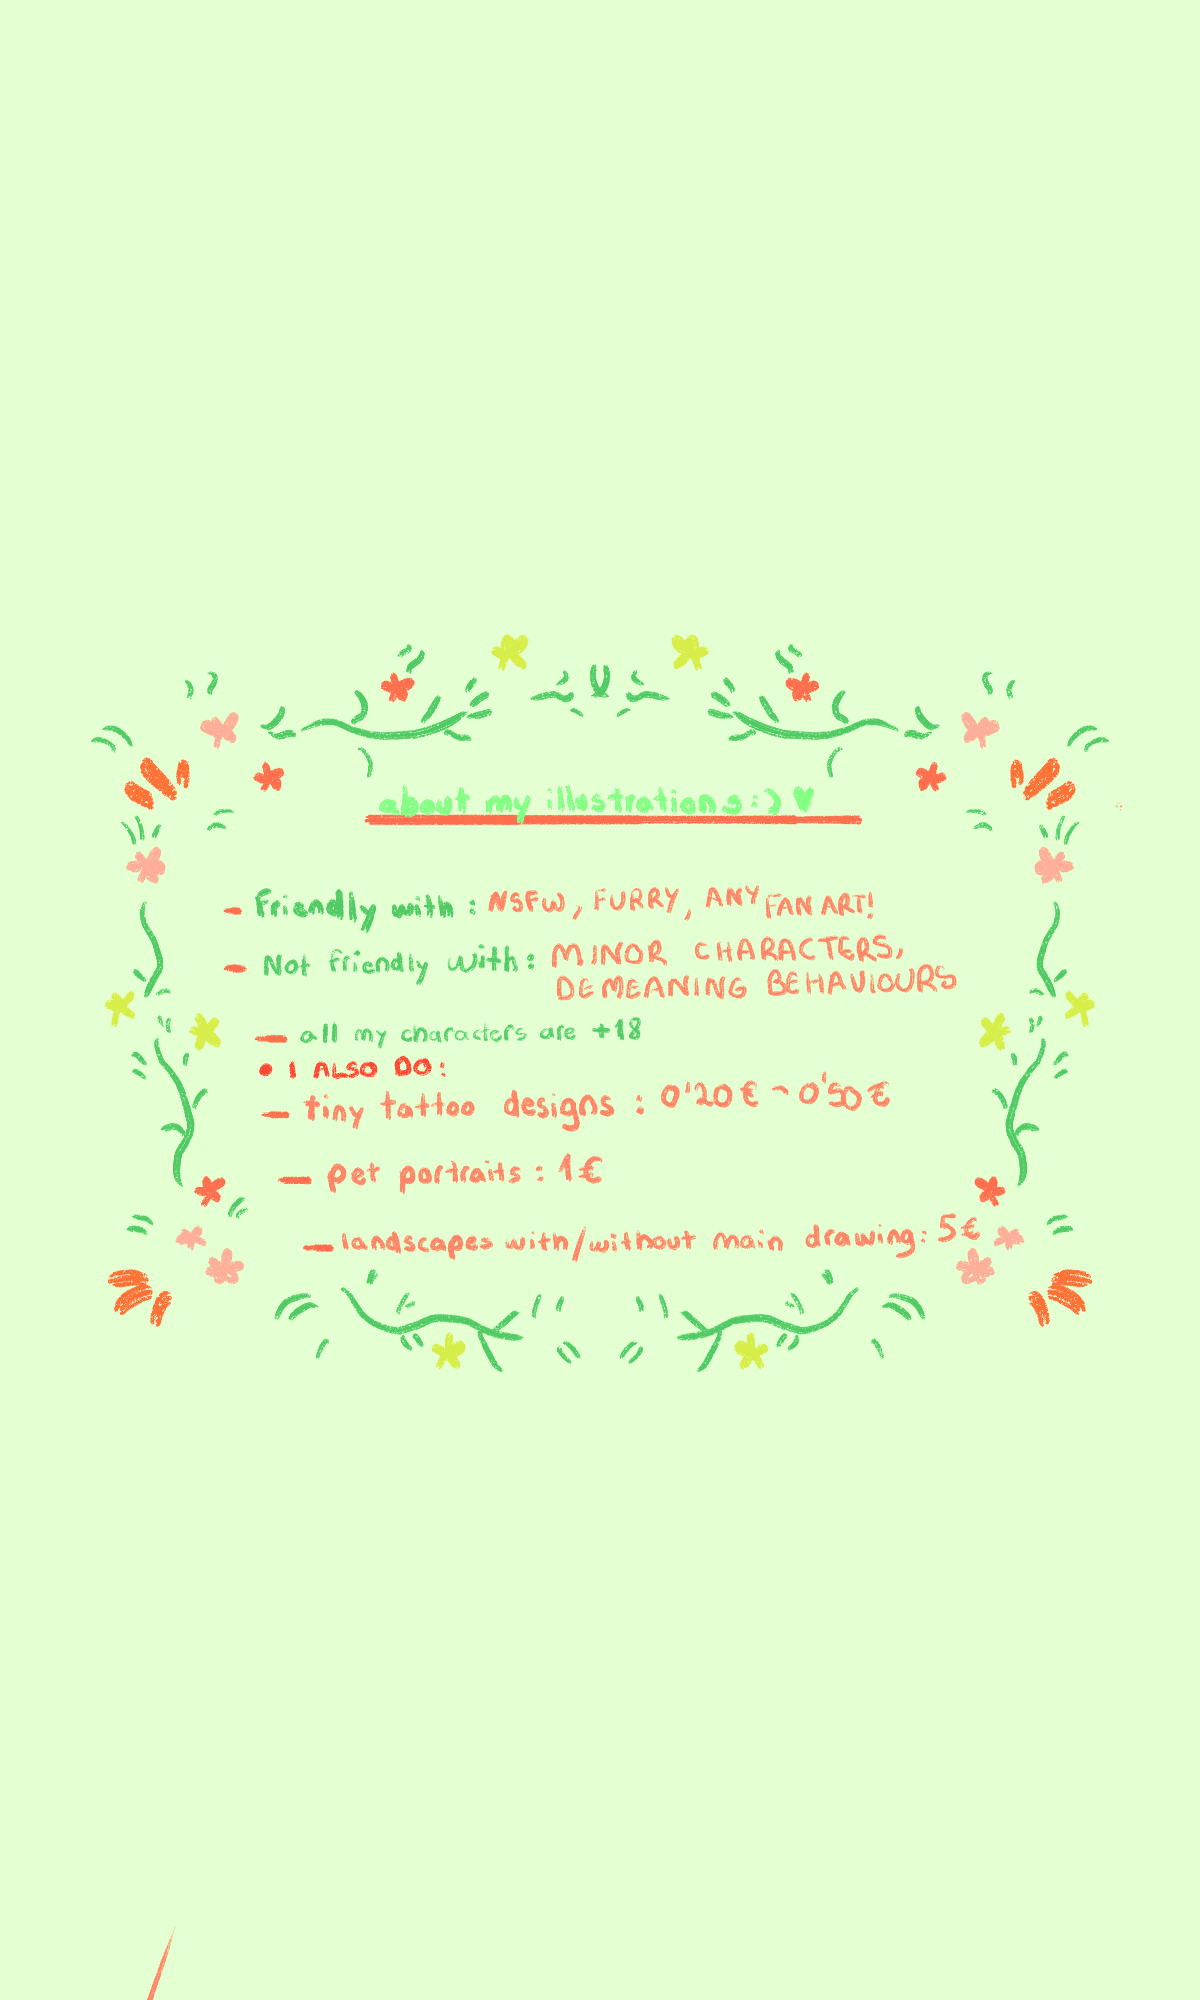 about my illustrations :) ♥
- Friendly with : NSFW, FURRY, ANY FAN ART!
- Not friendly with: MINOR CHARACTERS,
DEMEANING BEHAVIOURS
- all my characters are +18
• I ALSO DO:
- tiny tattoo designs : 0'20 € - 0'50 €
- pet portraits : 1€
- landscapes with/without main drawing: 5€